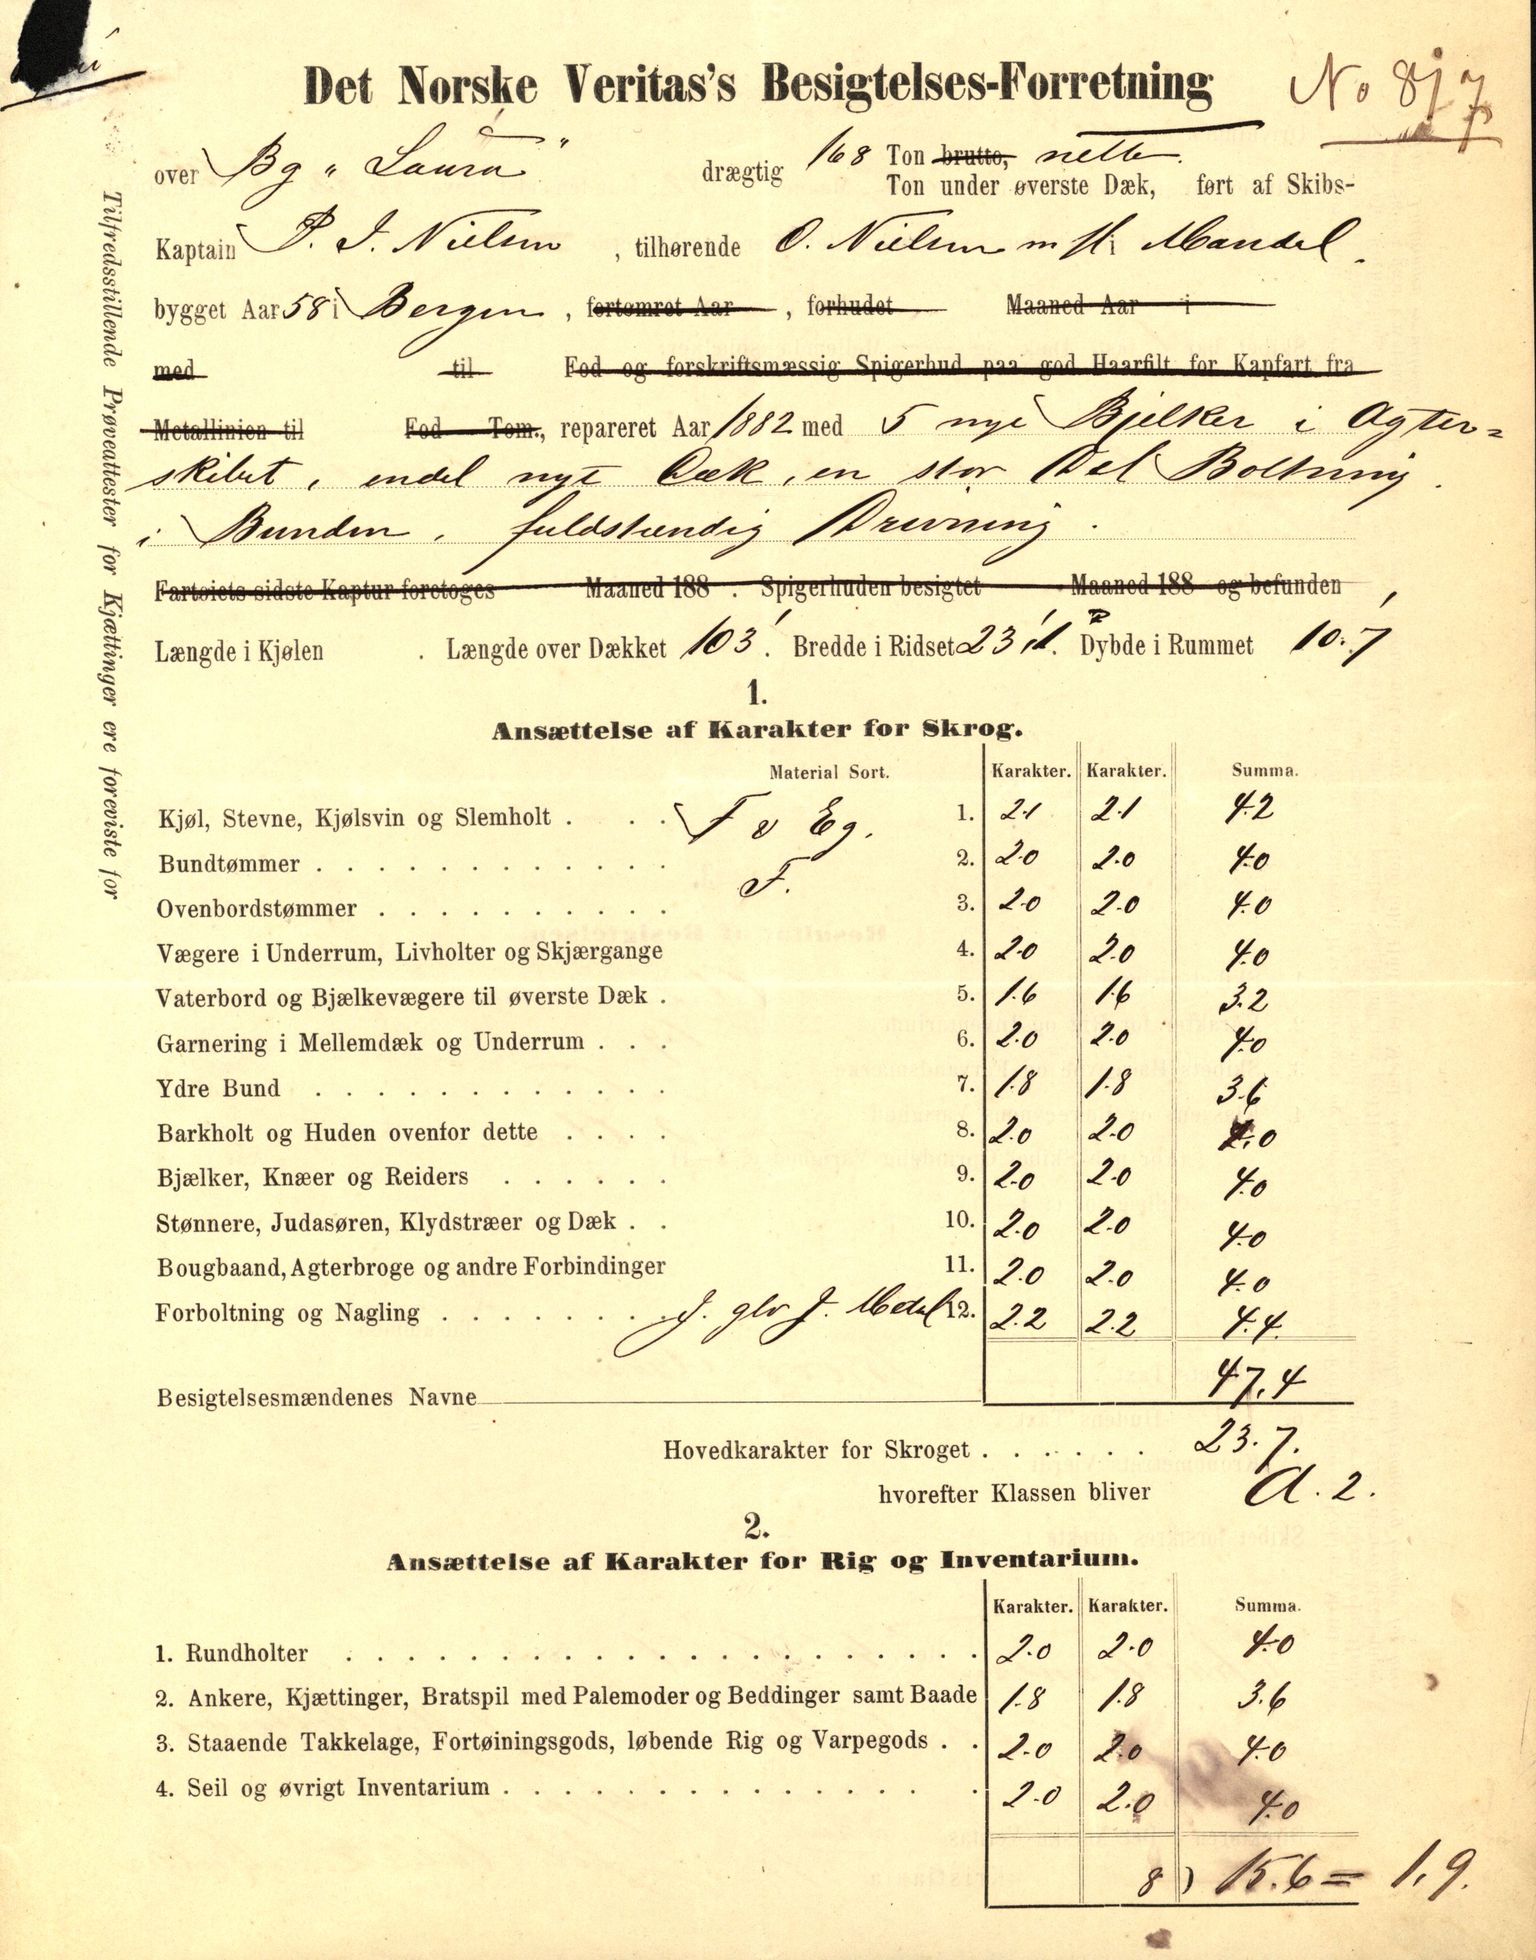 Det Norske Veritas's Besigtelses-Forretning
No 817
over Bg „Laura" drægtig 168 Ton brutto, netto.
Ton under øverste Dæk, ført af Skibs-
Kaptain P. J. Nielsen, tilhørende O. Nielsen m fl i Mandal.
bygget Aar 58 i Bergen, fortømret Aar , forhudet Maaned Aar i
med til Fod og forskriftsmæssig Spigerhud paa god Haarfilt for Kapfart fra
Metallinien til Fod Tom., repareret Aar 1882 med 5 nye Bjelker i Agter=
skibet, endel nyt Dæk, en stor Del Boltning
i Bunden, fuldstændig Drevning.
Fartøiets sidste Kaptur foretoges Maaned 188 . Spigerhuden besigtet Maaned 188 og befunden
Længde i Kjølen . Længde over Dækket 103'. Bredde i Ridset 23'.1. Dybde i Rummet 10.'7
Tilfredsstillende Prøveattester for Kjættinger ere foreviste for
1.
Ansættelse af Karakter for Skrog.
Material Sort. Karakter. Karakter. Summa.
Kjøl, Stevne, Kjølsvin og Slemholt . . . F v Eg. 1. 2.1 2.1 4.2
Bundtømmer . . . . . . . . . . . . F. 2. 2.0 2.0 4.0
Ovenbordstømmer . . . . . . . . . . 3. 2.0 2.0 4.0
Vægere i Underrum, Livholter og Skjærgange 4. 2.0 2.0 4.0
Vaterbord og Bjælkevægere til øverste Dæk . 5. 1.6 1.6 3.2
Garnering i Mellemdæk og Underrum . . . 6. 2.0 2.0 4.0
Ydre Bund . . . . . . . . . . . . 7. 1.8 1.8 3.6
Barkholt og Huden ovenfor dette . . . . 8. 2.0 2.0 4.0
Bjælker, Knæer og Reiders . . . . . . 9. 2.0 2.0 4.0
Stønnere, Judasøren, Klydstræer og Dæk . . 10. 2.0 2.0 4.0
Bougbaand, Agterbroge og andre Forbindinger 11. 2.0 2.0 4.0
Forboltning og Nagling . . . . . . . . J. glv J. Metal 12. 2.2 2.2 4.4
47.4
Besigtelsesmændenes Navne
Hovedkarakter for Skroget . . . . . . 23.7.
hvorefter Klassen bliver A. 2.
2.
Ansættelse af Karakter for Rig og Inventarium.
Karakter. Karakter. Summa.
1. Rundholter . . . . . . . . . . . . . . . . . . . . . 2.0 2.0 4.0
2. Ankere, Kjættinger, Bratspil med Palemoder og Beddinger samt Baade 1.8 1.8 3.6
3. Staaende Takkelage, Fortøiningsgods, løbende Rig og Varpegods . . 2.0 2.0 4.0
4. Seil og øvrigt Inventarium . . . . . . . . . . . . . . . 2.0 2.0 4.0
8) 15.6 = 1.9.